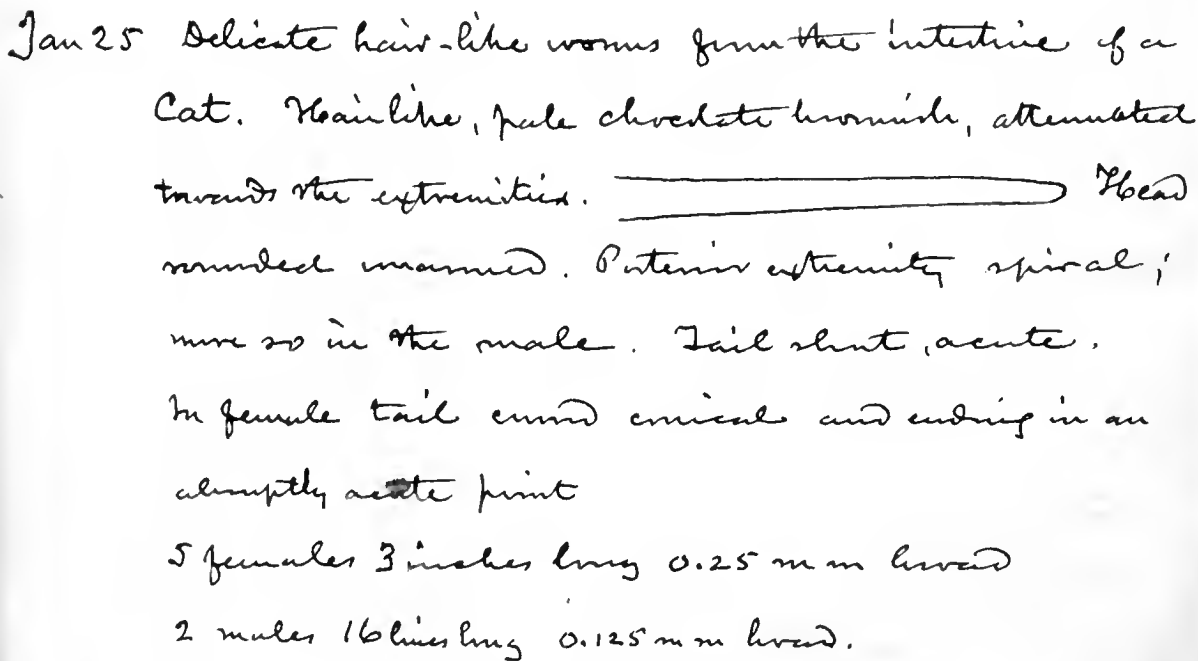 Jan 25 Delicate hair-like worms from the intestine of a
Cat. Hairlike, pale chocolate brownish, attenuated
towards the extremities. Head
rounded unarmed. Posterior extremity spiral;
more so in the male. Tail short, acute.
In female tail curved conical and ending in an
abruptly acute point
5 females 3 inches long 0.25 mm broad
2 males 16 lines long 0.125 mm broad.